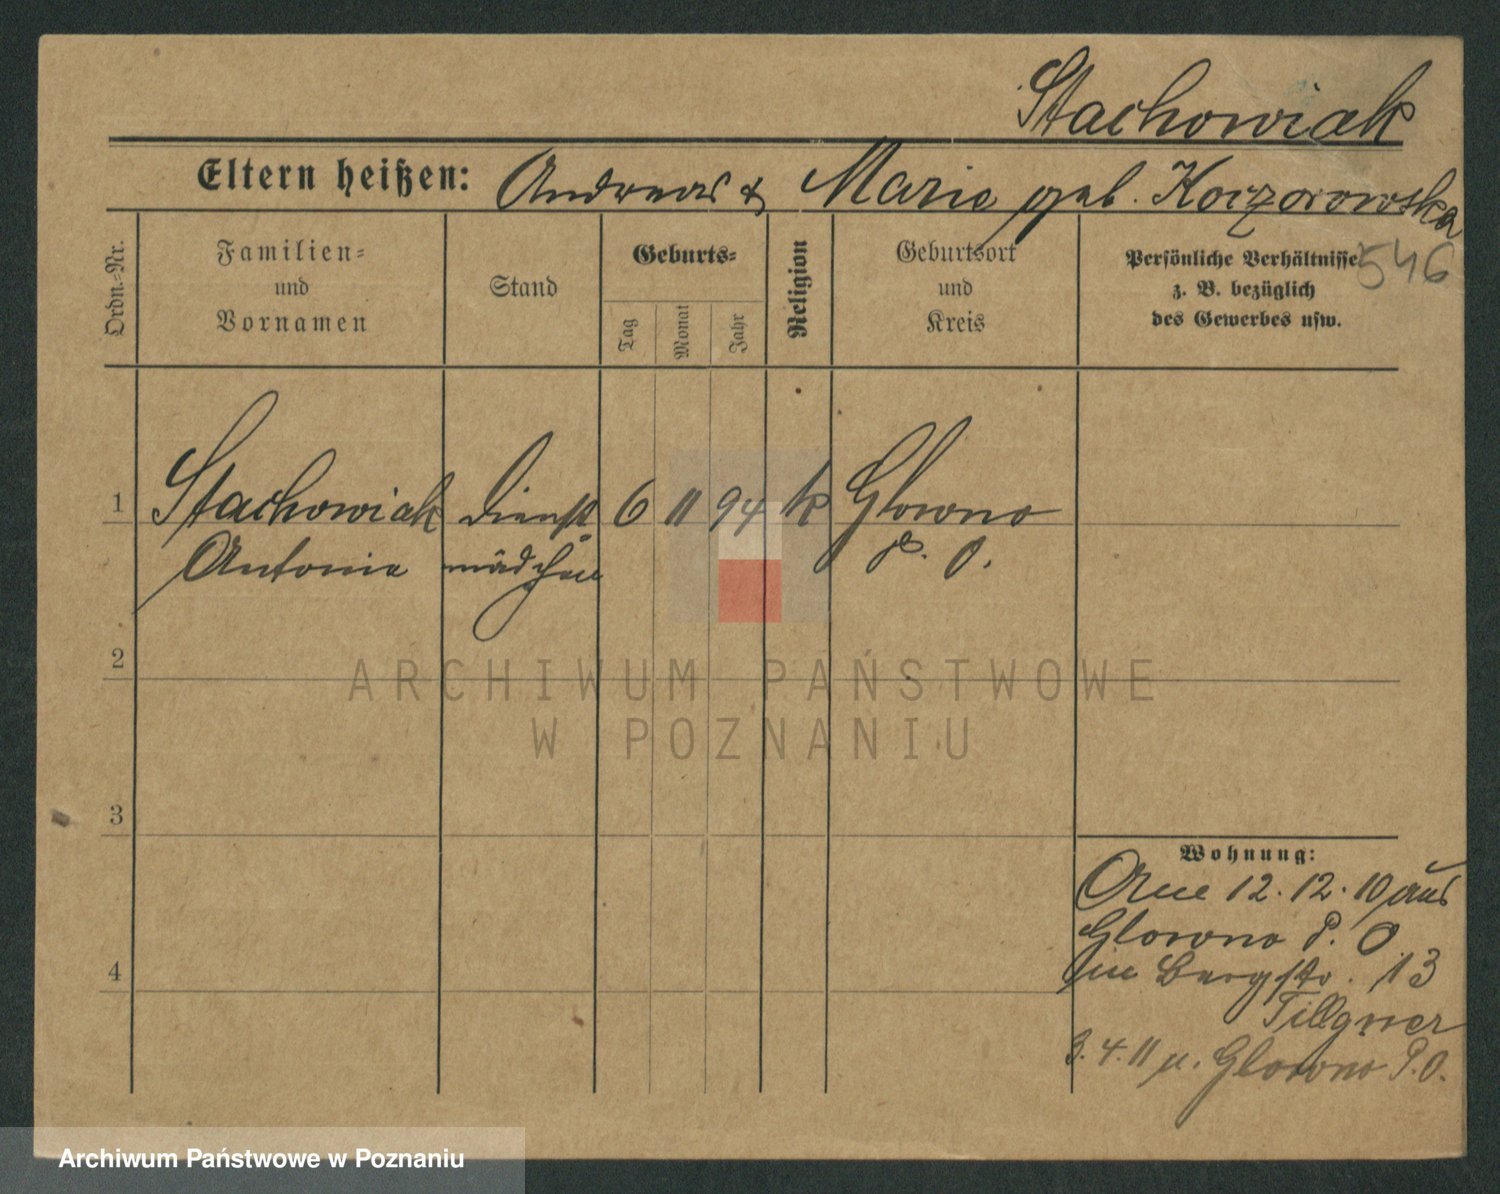 Stachowiak
Eltern heißen: Andreas & Marie geb. Korzorowska
546
Ordn.-Nr.
Familien=
und
Vornamen
Stand
Geburts=
Tag
Monat
Jahr
Religion
Geburtsort
und
Kreis
Persönliche Verhältnisse
z. B. bezüglich
des Gewerbes usw.
1 Stachowiak Dienst 6 11 94 k Glowno
Antonie mädchen P. O.
2
3
4
Wohnung:
12.12.10 aus
Glowno P. O
in Bergstr. 13
Tillgner
3.4.11 n. Glowno P.O.
ARCHIWUM PAŃSTWOWE
W POZNANIU
Archiwum Państwowe w Poznaniu